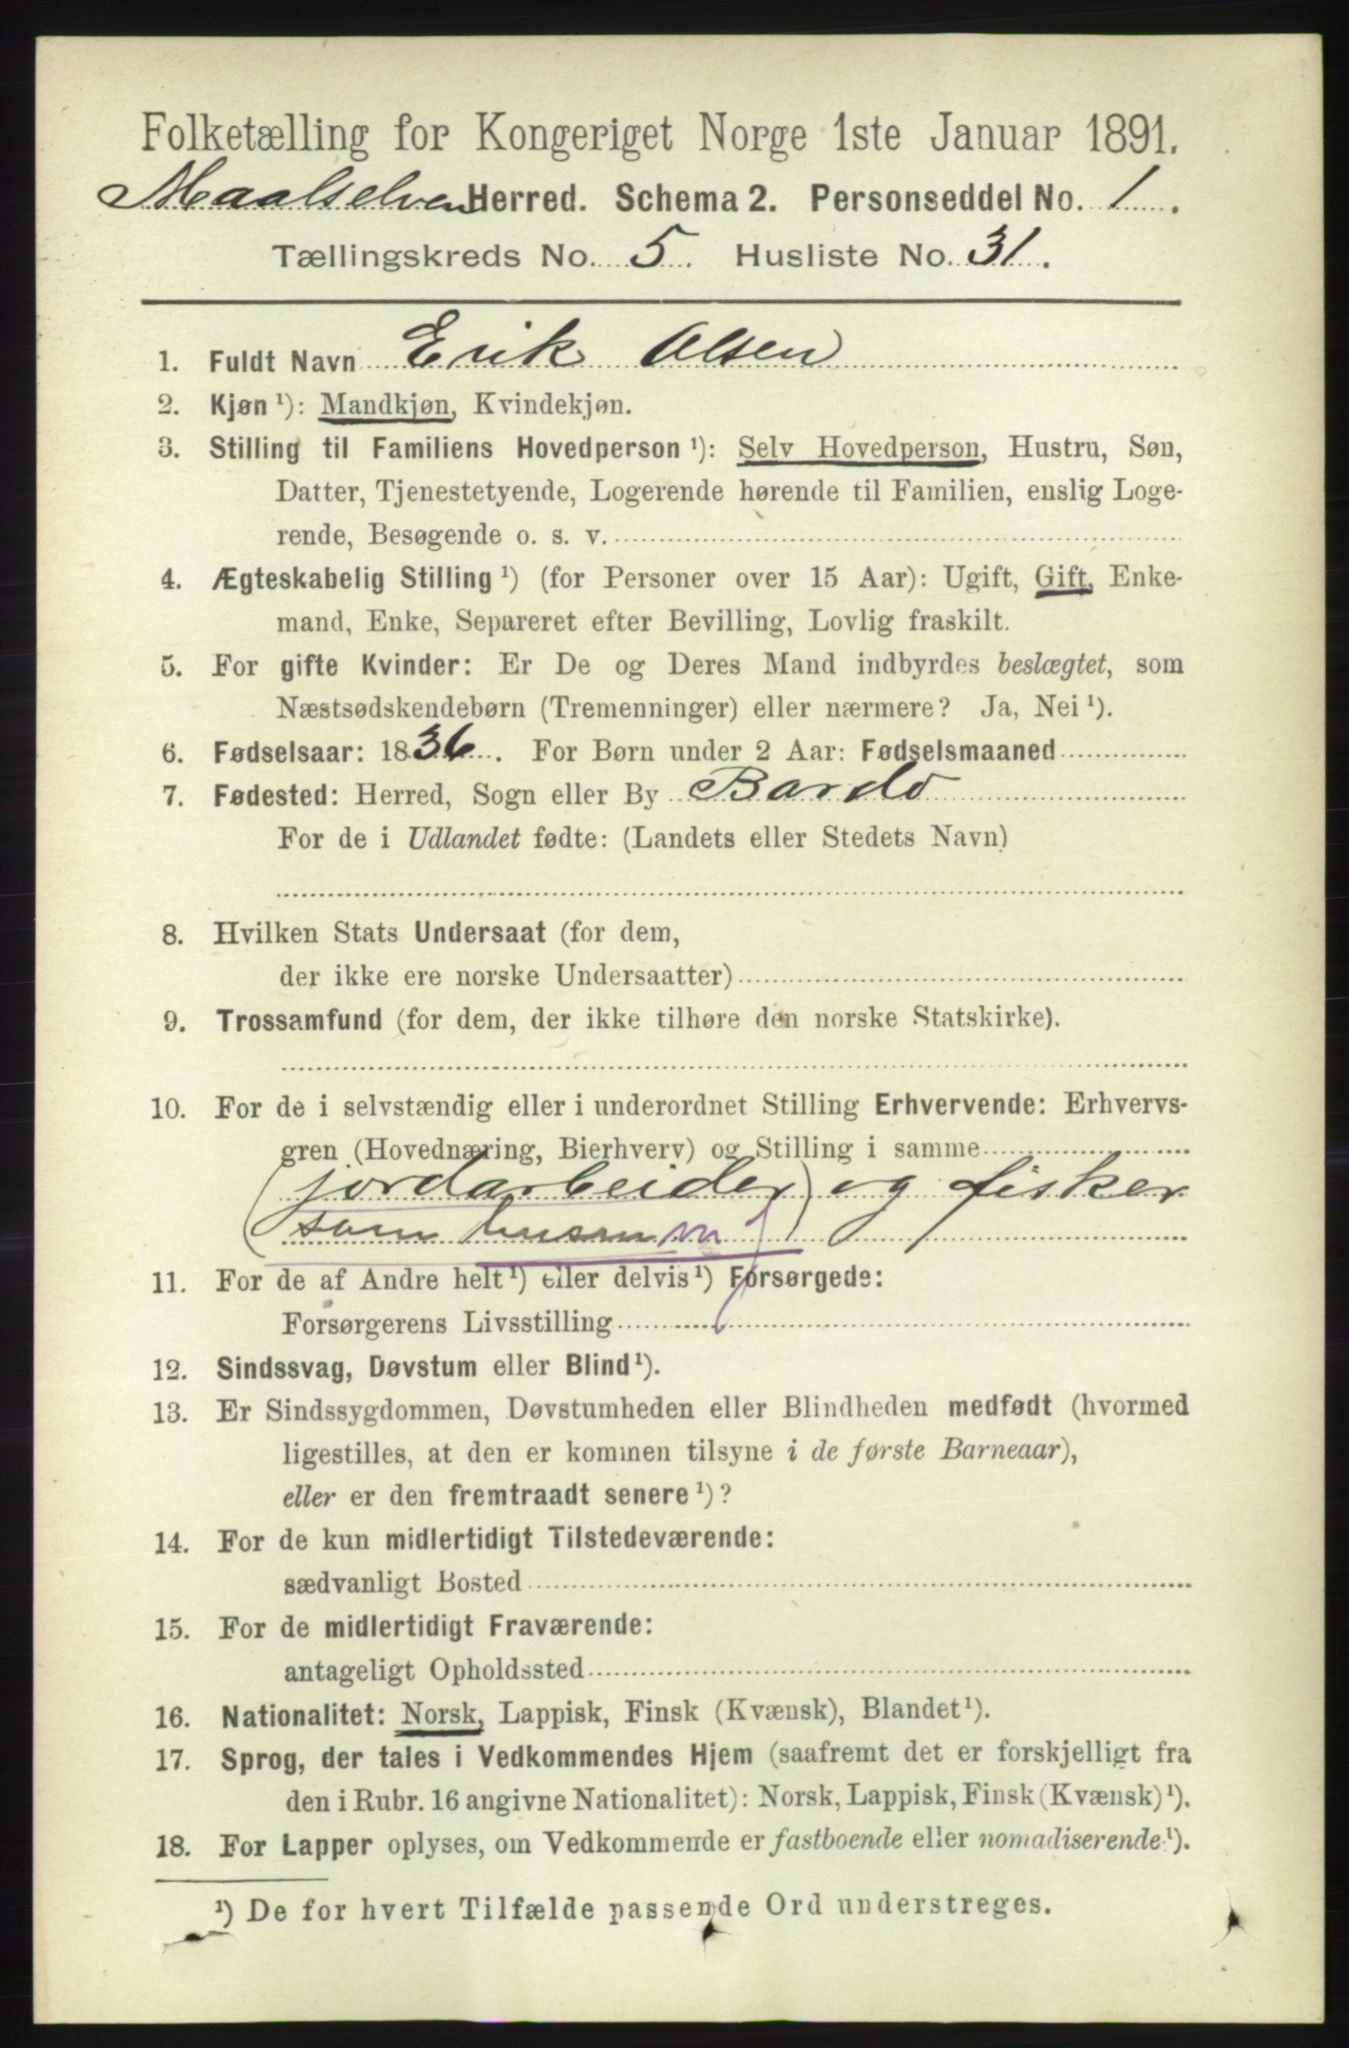 Folketælling for Kongeriget Norge 1ste Januar 1891.
Maalselven Herred. Schema 2. Personseddel No. 1.
Tællingskreds No. 5. Husliste No. 31.
1. Fuldt Navn Erik Olsen
2. Kjøn ¹): Mandkjøn, Kvindekjøn.
3. Stilling til Familiens Hovedperson ¹): Selv Hovedperson, Hustru, Søn,
Datter, Tjenestetyende, Logerende hørende til Familien, enslig Loge-
rende, Besøgende o. s. v.
4. Ægteskabelig Stilling ¹) (for Personer over 15 Aar): Ugift, Gift, Enke-
mand, Enke, Separeret efter Bevilling, Lovlig fraskilt.
5. For gifte Kvinder: Er De og Deres Mand indbyrdes beslægtet, som
Næstsødskendebørn (Tremenninger) eller nærmere? Ja, Nei ¹).
6. Fødselsaar: 1836. For Børn under 2 Aar: Fødselsmaaned
7. Fødested: Herred, Sogn eller By Bardo
For de i Udlandet fødte: (Landets eller Stedets Navn)
8. Hvilken Stats Undersaat (for dem,
der ikke ere norske Undersaatter)
9. Trossamfund (for dem, der ikke tilhøre den norske Statskirke).
10. For de i selvstændig eller i underordnet Stilling Erhvervende: Erhvervs-
gren (Hovednæring, Bierhverv) og Stilling i samme
(jordarbeider) og fisker
(som husmm)
11. For de af Andre helt ¹) eller delvis ¹) Forsørgede:
Forsørgerens Livsstilling
12. Sindssvag, Døvstum eller Blind ¹).
13. Er Sindssygdommen, Døvstumheden eller Blindheden medfødt (hvormed
ligestilles, at den er kommen tilsyne i de første Barneaar),
eller er den fremtraadt senere ¹)?
14. For de kun midlertidigt Tilstedeværende:
sædvanligt Bosted
15. For de midlertidigt Fraværende:
antageligt Opholdssted
16. Nationalitet: Norsk, Lappisk, Finsk (Kvænsk), Blandet ¹).
17. Sprog, der tales i Vedkommendes Hjem (saafremt det er forskjelligt fra
den i Rubr. 16 angivne Nationalitet): Norsk, Lappisk, Finsk (Kvænsk) ¹).
18. For Lapper oplyses, om Vedkommende er fastboende eller nomadiserende ¹).
¹) De for hvert Tilfælde passende Ord understreges.